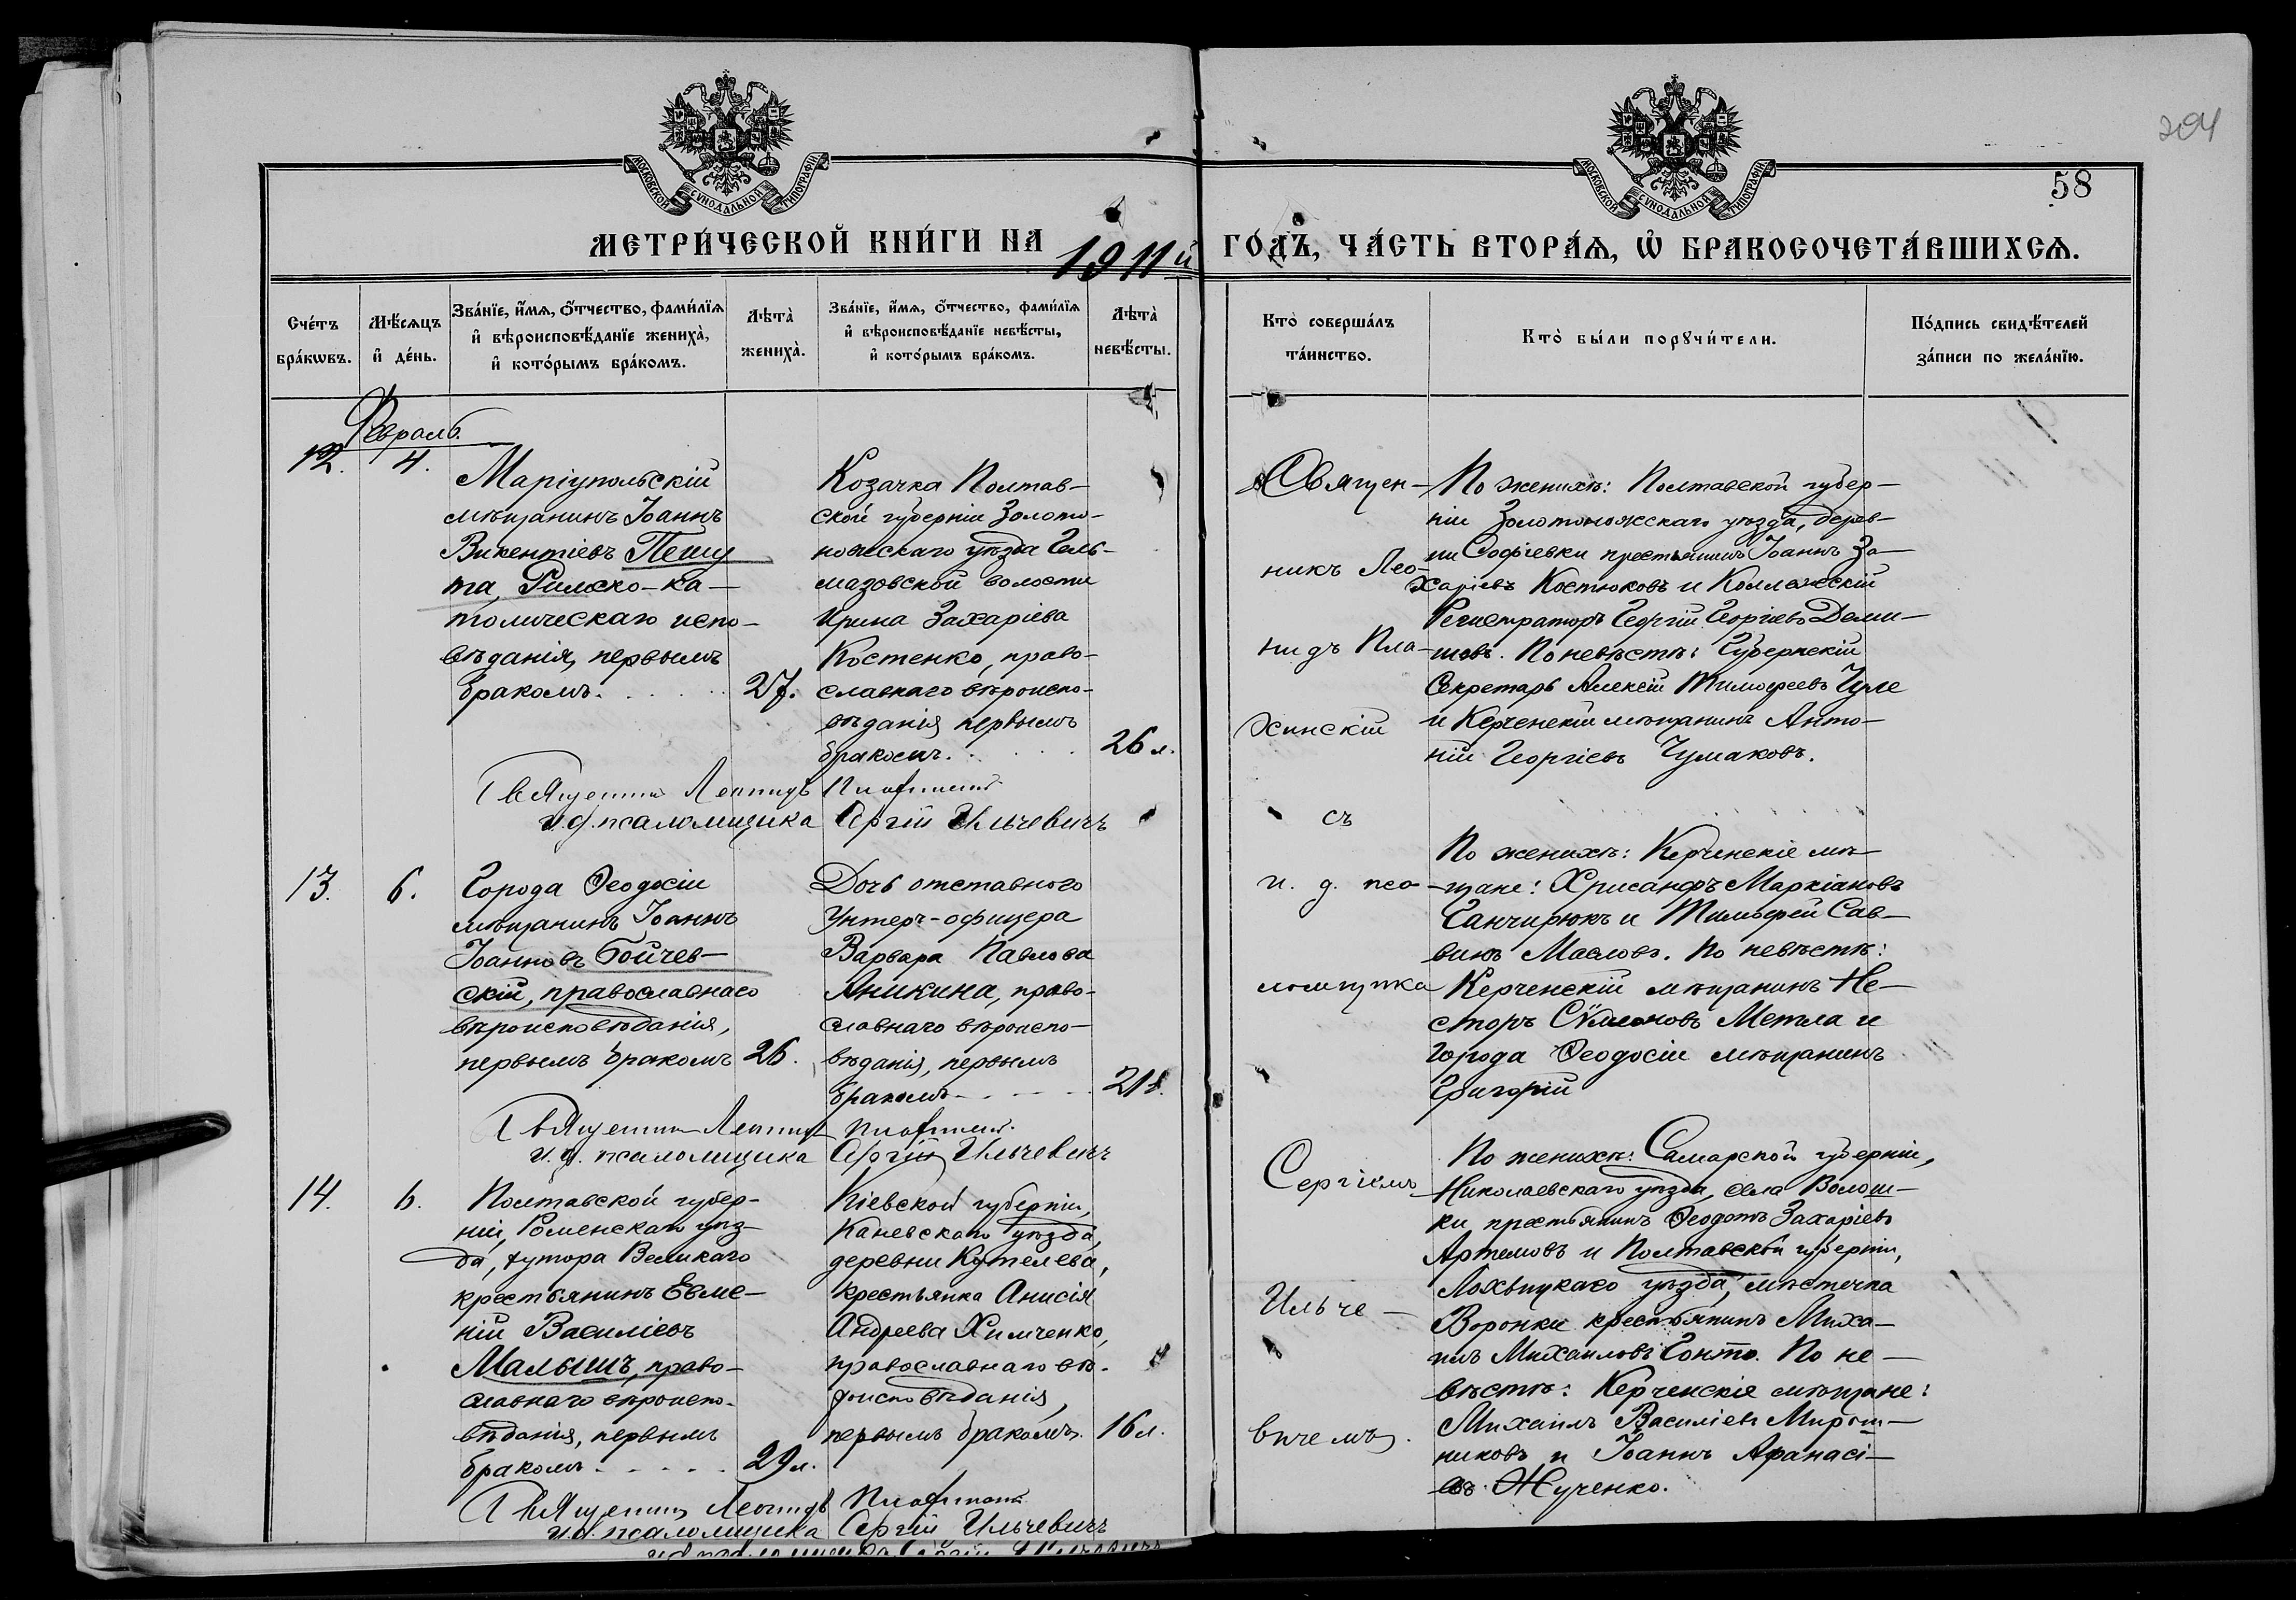 204
58
МОСКОВСКОЙ СѴНОДАЛЬНОЙ ТИПОГРАФІИ
МОСКОВСКОЙ СѴНОДАЛЬНОЙ ТИПОГРАФІИ
МЕТРИ́ЧЕСКОЙ КНИ́ГИ НА 1911й ГО́ДЪ, ЧА́СТЬ ВТОРА́Ѧ, Ѡ҆ БРАКОСОЧЕТА́ВШИХСѦ.
Сче́тъ бра́кѡвъ.
Мѣ́сѧцъ и҆ де́нь.
Зва́нїе, и҆́мѧ, ѻ҆́тчество, фами́лїѧ
и҆ вѣроисповѣ́данїе жениха̀,
и҆ кото́рымъ бра́комъ.
Лѣта̀ жениха̀.
Зва́нїе, и҆́мѧ, ѻ҆́тчество, фами́лїѧ
и҆ вѣроисповѣ́данїе невѣ́сты,
и҆ кото́рымъ бра́комъ.
Лѣта̀ невѣ́сты.
Кто̀ соверша́лъ та́инство.
Кто̀ бы́ли порꙋчи́тели.
По́дпись свидѣ́телей за́писи по жела́нїю.
Февраль
12. 4.
Маріупольскій
мѣщанинъ Іоаннъ
Викентіевъ Пешу
та, Римско-ка-
толическаго испо-
вѣданія, первымъ
бракомъ. 27.
Козачка Полтав-
ской губерніи Золото-
ножскаго уѣзда Гель-
мязовской волости
Ирина Захаріева
Костенко, право-
славнаго вѣроиспо-
вѣданія первымъ
бракомъ. 26 л.
Священникъ Леонидъ Плохинскій
и. д. псаломщика Сергій Ильчевичъ
По женихѣ: Полтавской губер-
ніи Золотоножскаго уѣзда, дерев-
ни Софіевки крестьянинъ Іоаннъ За-
харіевъ Костюковъ и Коллежскій
Регистраторъ Георгій Георгіевъ Деми-
шовъ. По невѣстѣ: Губернскій
Секретарь Алексій Тимофеевъ Цуле
и Керченскій мѣщанинъ Анто-
ній Георгіевъ Чумаковъ.
13. 6.
Города Ѳеодосіи
мѣщанинъ Іоаннъ
Іоанновъ Бойчев-
скій, православнаго
вѣроисповѣданія,
первымъ бракомъ 26.
Дочь отставного
Унтеръ-офицера
Варвара Павлова
Аникина, право-
славнаго вѣроиспо-
вѣданія, первымъ
бракомъ 21 л.
Священникъ Леонидъ Плохинскій
и. д. псаломщика Сергій Ильчевичъ
По женихѣ: Керченскіе мѣ-
щане: Хрисанфъ Маркіановъ
Ганчирюкъ и Тимофей Сав-
винъ Масловъ. По невѣстѣ:
Керченскій мѣщанинъ Не-
сторъ Сѷмеоновъ Метла и
города Ѳеодосіи мѣщанинъ
Григорій
14. 6.
Полтавской губер-
ніи, Роменскаго уѣз-
да, хутора Великаго
крестьянинъ Евме-
ній Василіевъ
Малышъ, право-
славнаго вѣроиспо-
вѣданія, первымъ
бракомъ 29 л.
Кіевской губерніи,
Каневскаго уѣзда,
деревни Кутелева,
крестьянка Анисія
Андреева Химченко,
православнаго вѣ-
роисповѣданія,
первымъ бракомъ. 16 л.
Священникъ Леонидъ Плохинскій
и. д. псаломщика Сергій Ильчевичъ
По женихѣ: Самарской губерніи,
Николаевскаго уѣзда, села Волош-
ки, крестьянинъ Ѳеодотъ Захаріевъ
Артемовъ и Полтавской губерніи,
Лохвицкаго уѣзда, мѣстечка
Воронки крестьянинъ Миха-
илъ Михаиловъ Гонто. По не-
вѣстѣ: Керченскіе мѣщане:
Михаилъ Василіевъ Мирош-
никовъ и Іоаннъ Афанасі-
евъ Жученко.
Священ-
никъ Лео-
нидъ Пло-
хинскій
съ
и. д. пса-
ломщика
Сергіемъ
Ильче-
вичемъ.